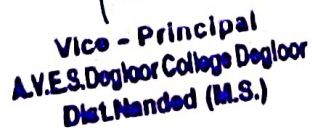 Vice - Principal
A.V.E.S. Degloor College Degloor
Dist.Nanded (M.S.)